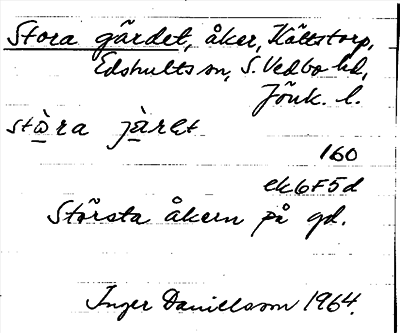 Stora gärdet, åker, Kättstorp,
Edshults sn, S. Vedbo hd,
Jönk. l.
stò̠ra jà̠rət
160
ek6F5d
Största åkern på gd.
Inger Danielsson 1964.